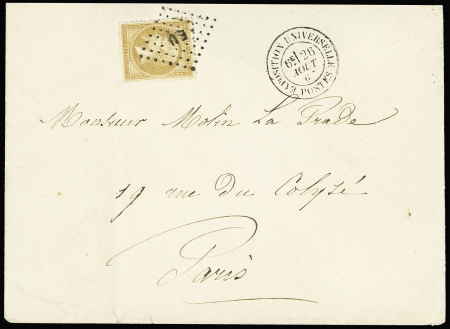 EU
EXPOSITION UNIVERSELLE
6E/ 26
AOUT
POSTES
Monsieur Molin La Prade
19 rue du Colysé
Paris